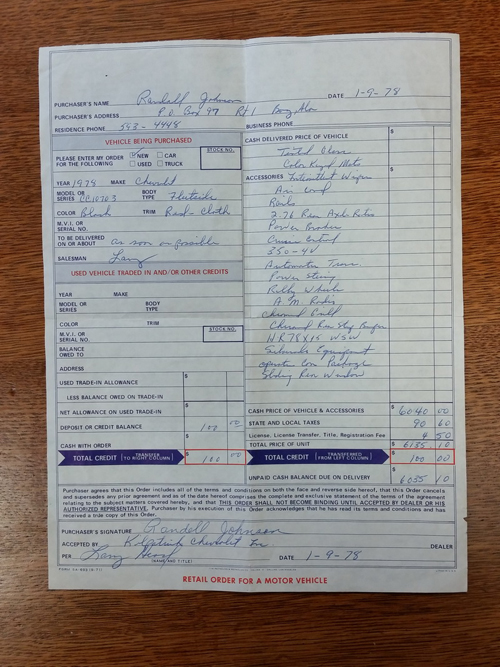 PURCHASER'S NAME Randall Johnson DATE 1-9-78
PURCHASER'S ADDRESS P.O. Box 97 Rt 1
RESIDENCE PHONE 553-4448 BUSINESS PHONE
VEHICLE BEING PURCHASED
STOCK NO.
PLEASE ENTER MY ORDER FOR THE FOLLOWING
NEW CAR
USED TRUCK
YEAR 1978 MAKE Chevrolet
MODEL OR SERIES CC10703 BODY TYPE Fleetside
COLOR Black TRIM Red-Cloth
M.V.I. OR SERIAL NO.
TO BE DELIVERED ON OR ABOUT as soon as possible
SALESMAN Larry
USED VEHICLE TRADED IN AND/OR OTHER CREDITS
YEAR MAKE
MODEL OR SERIES BODY TYPE
COLOR TRIM
STOCK NO.
M.V.I. OR SERIAL NO.
BALANCE OWED TO
ADDRESS
USED TRADE-IN ALLOWANCE $
LESS BALANCE OWED ON TRADE-IN
NET ALLOWANCE ON USED TRADE-IN $
DEPOSIT OR CREDIT BALANCE 100 00
CASH WITH ORDER
TOTAL CREDIT TRANSFER TO RIGHT COLUMN $ 100 00
CASH DELIVERED PRICE OF VEHICLE $
Tinted Glass
Color Keyed Mats
ACCESSORIES Intermittent Wipers $
Air Cond
Rails
2.76 Rear Axle Ratio
Power Brakes
Cruise Control
350-4V
Automatic Trans
Power Steering
Rally Wheels
A.M. Radio
Chromed Grill
Chromed Rear Step Bumper
HR78X15 WSW
Silverado Equipment
operator Con Package
Sliding Rear Window
CASH PRICE OF VEHICLE & ACCESSORIES $ 6040 00
STATE AND LOCAL TAXES 90 60
License, License Transfer, Title, Registration Fee 4 50
TOTAL PRICE OF UNIT $ 6135 10
TOTAL CREDIT TRANSFERRED FROM LEFT COLUMN $ 100 00
UNPAID CASH BALANCE DUE ON DELIVERY $ 6035 10
Purchaser agrees that this Order includes all of the terms and conditions on both the face and reverse side hereof, that this Order cancels
and supersedes any prior agreement and as of the date hereof comprises the complete and exclusive statement of the terms of the agreement
relating to the subject matters covered hereby, and that THIS ORDER SHALL NOT BECOME BINDING UNTIL ACCEPTED BY DEALER OR HIS
AUTHORIZED REPRESENTATIVE. Purchaser by his execution of this Order acknowledges that he has read its terms and conditions and has
received a true copy of this Order.
PURCHASER'S SIGNATURE Randall Johnson
ACCEPTED BY Kilpatrick Chevrolet Inc DEALER
PER Larry (NAME AND TITLE) DATE 1-9-78
RETAIL ORDER FOR A MOTOR VEHICLE